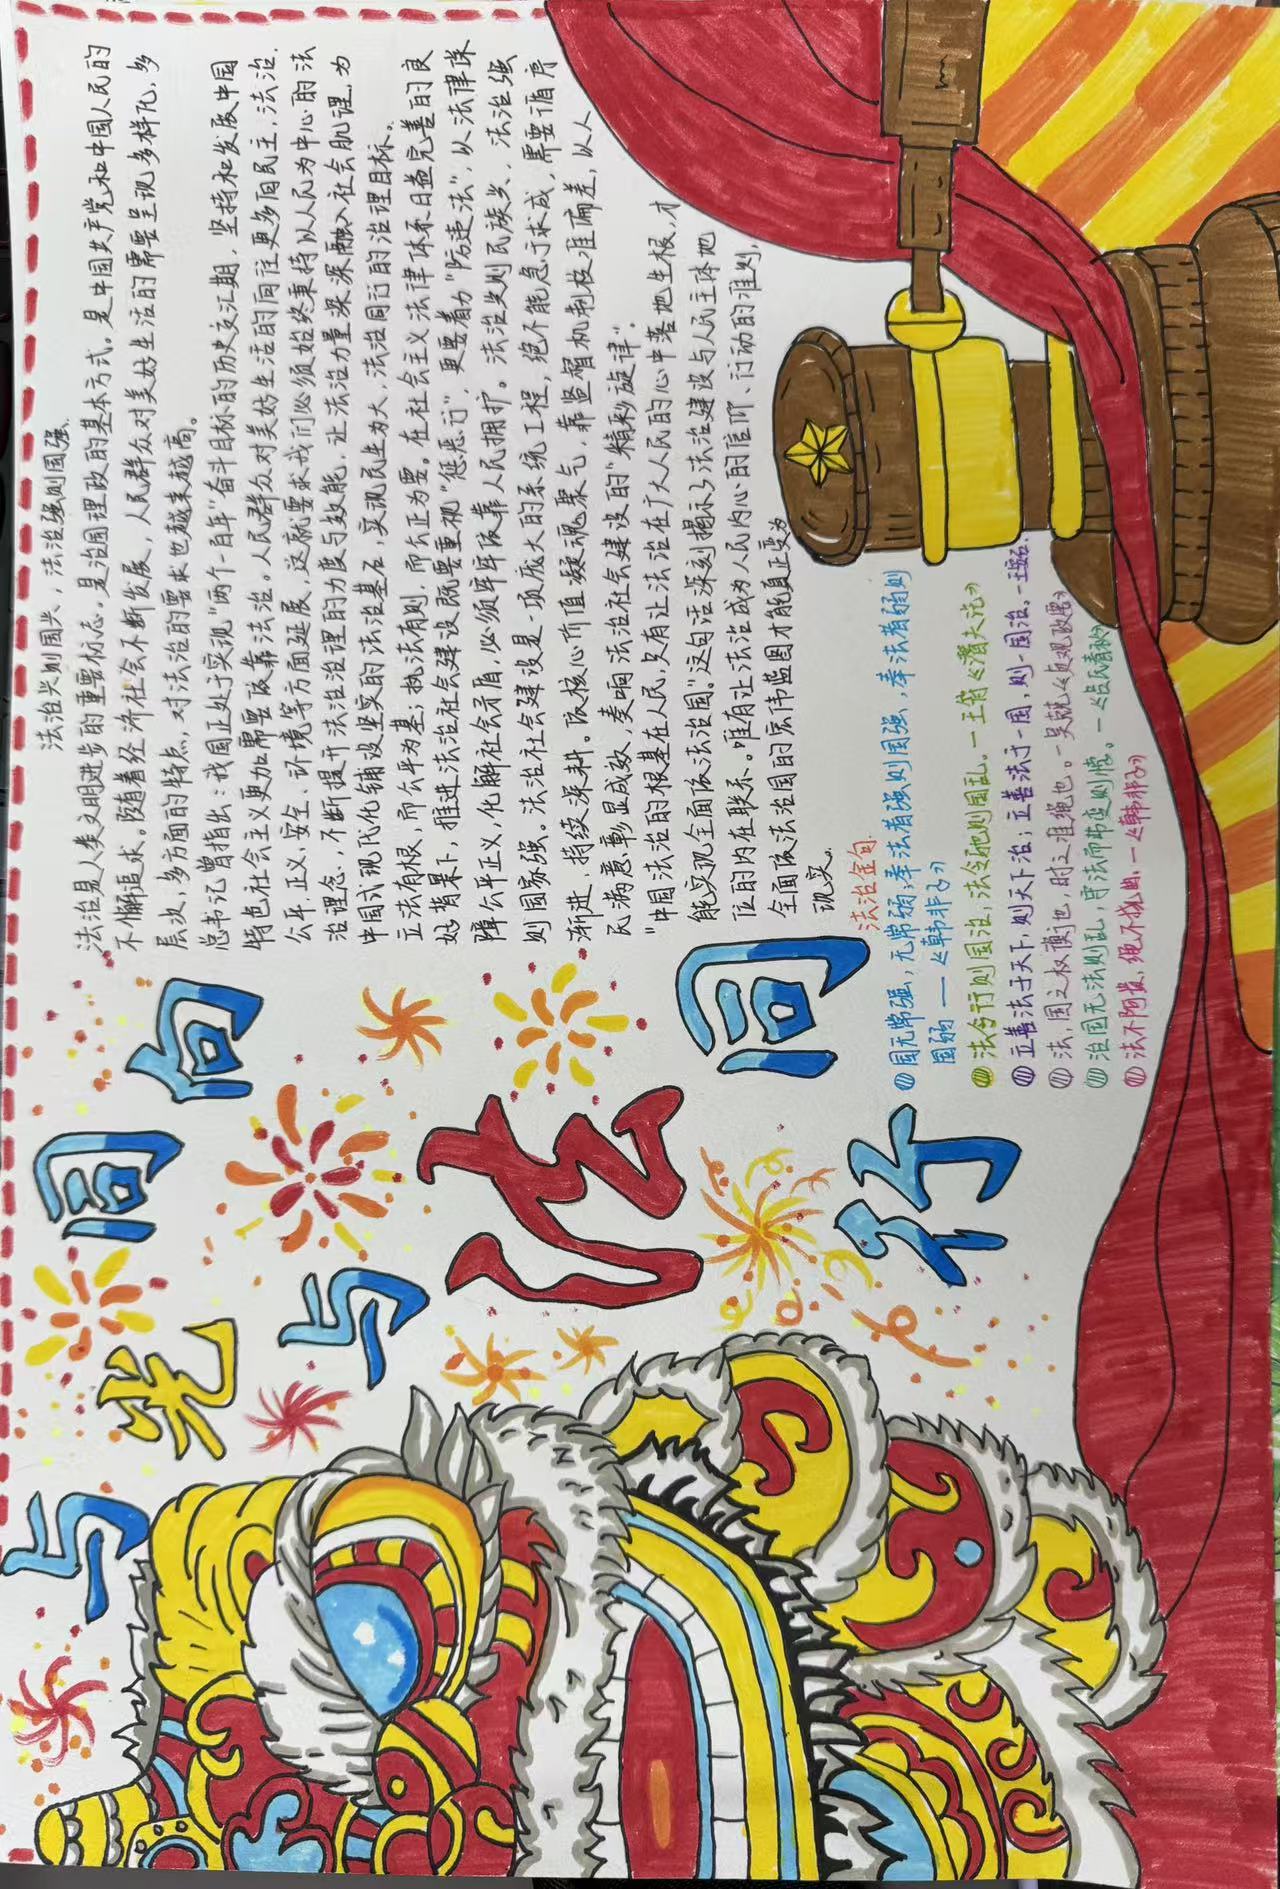 与光同向
与法同行
法治兴则国兴，法治强则国强。
法治是人类文明进步的重要标志。是治国理政的基本方式。是中国共产党和中国人民的
不懈追求。随着经济社会不断发展，人民群众对美好生活的需要呈现多样化、多
层次，多方面的特点，对法治的要求也越来越高。
总书记曾指出：我国正处于实现“两个一百年”奋斗目标的历史交汇期，坚持和发展中国
特色社会主义更加需要依靠法治。人民群众对美好生活的向往更多向民主，法治.
公平正义，安全、环境等方面延展，这就要求我们必须始终秉持以人民为中心的法
治理念，不断提升法治治理的力度与效能，让法治力量深深融入社会肌理，为
中国式现代化铺设坚实的法治基石，实现民生为大，法治同行的治理目标。
立法有根，而公平为基；执法有则，而公正为要。在社会主义法律体系日益完善的良
好背景下，推进法治社会建设既要重视“惩恶行”，更要着力“防违法”，从法律保
障公平正义，化解社会矛盾，必须牢牢依靠人民拥护。法治兴则民族兴，法治强
则国家强。法治社会建设是一项庞大的系统工程，绝不能急于求成，需要循序
渐进，持续深耕。依核心价值凝魂聚气，靠监督机制校准偏差，以人
民满意彰显成效，奏响法治社会建设的“精彩旋律”。
“中国法治的根基在人民，只有让法治在广大人民的心中落地生根，才
能实现全面依法治国。”这句话深刻揭示了法治建设与人民主体地
位的内在联系。唯有让法治成为人民内心的信仰、行动的准则，
全面依法治国的宏伟蓝图才能真正变为
现实。
法治金句.
国无常强，无常弱；奉法者强则国强，奉法者弱则
国弱 —《韩非子》
法令行则国治，法令弛则国乱。—王符《潜夫论》
立善法于天下，则天下治；立善法于一国，则一国治。—王安石.
法，国之权衡也，时之准绳也。—吴兢《贞观政要》
治国无法则乱，守法而弗变则悖。—《吕氏春秋》
法不阿贵，绳不挠曲，—《韩非子》